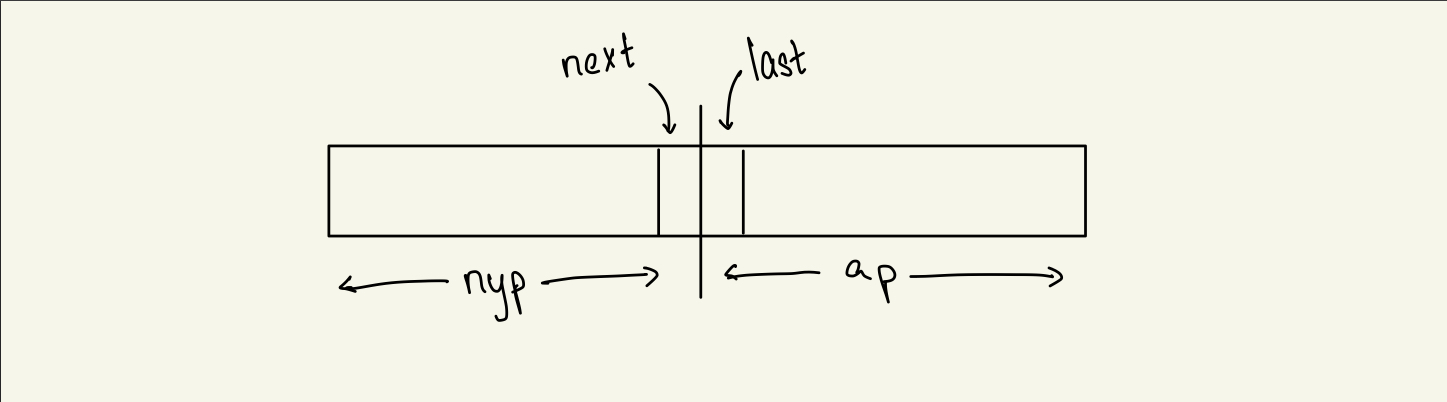 next last
nyp ap